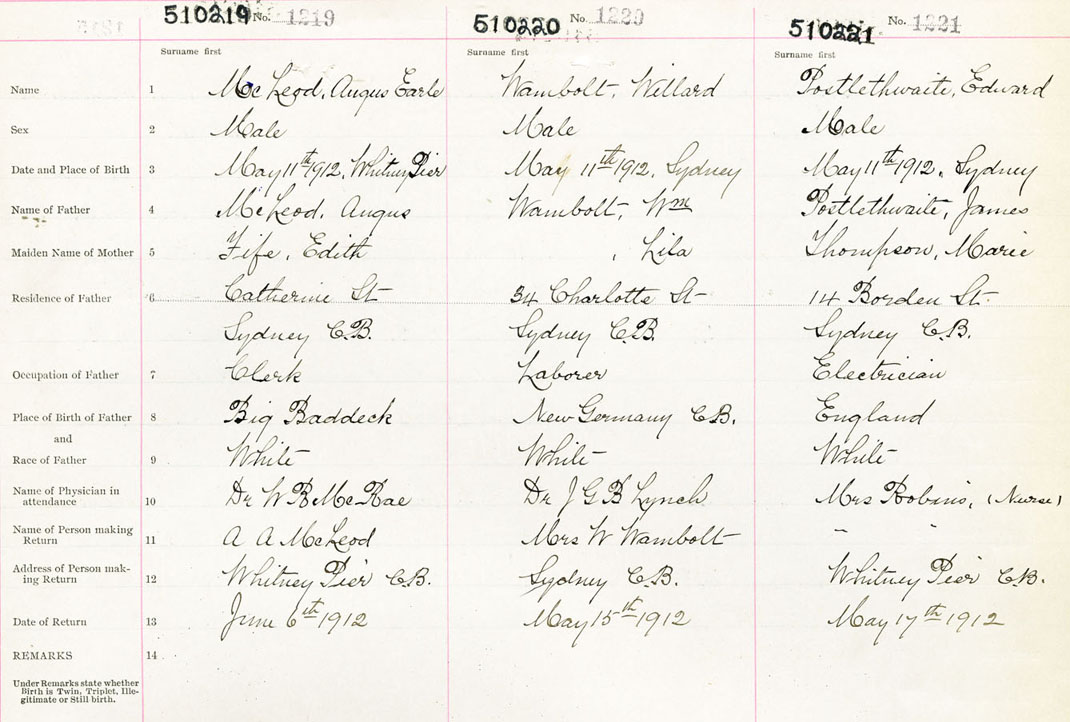 510219 No. 1219 510220 No. 1220 510221 No. 1221
Surname first Surname first Surname first
Name 1 McLeod, Angus Earle Wambolt, Willard Postlethwaite, Edward
Sex 2 Male Male Male
Date and Place of Birth 3 May 11th 1912, Whitney Pier May 11th 1912, Sydney May 11th 1912, Sydney
Name of Father 4 McLeod, Angus Wambolt, Wm Postlethwaite, James
Maiden Name of Mother 5 Fife, Edith , Lila Thompson, Marie
Residence of Father 6 Catherine St 34 Charlotte St 14 Borden St.
Sydney C.B. Sydney C.B. Sydney C.B.
Occupation of Father 7 Clerk Laborer Electrician
Place of Birth of Father 8 Big Baddeck New Germany C.B. England
and
Race of Father 9 White White White
Name of Physician in
attendance 10 Dr W R McRae Dr J G B Lynch Mrs Robins, (Nurse)
Name of Person making
Return 11 A A McLeod Mrs W Wambolt " "
Address of Person mak-
ing Return 12 Whitney Pier C.B. Sydney C.B. Whitney Pier C.B.
Date of Return 13 June 6th 1912 May 15th 1912 May 17th 1912
REMARKS 14
Under Remarks state whether
Birth is Twin, Triplet, Ille-
gitimate or Still birth.